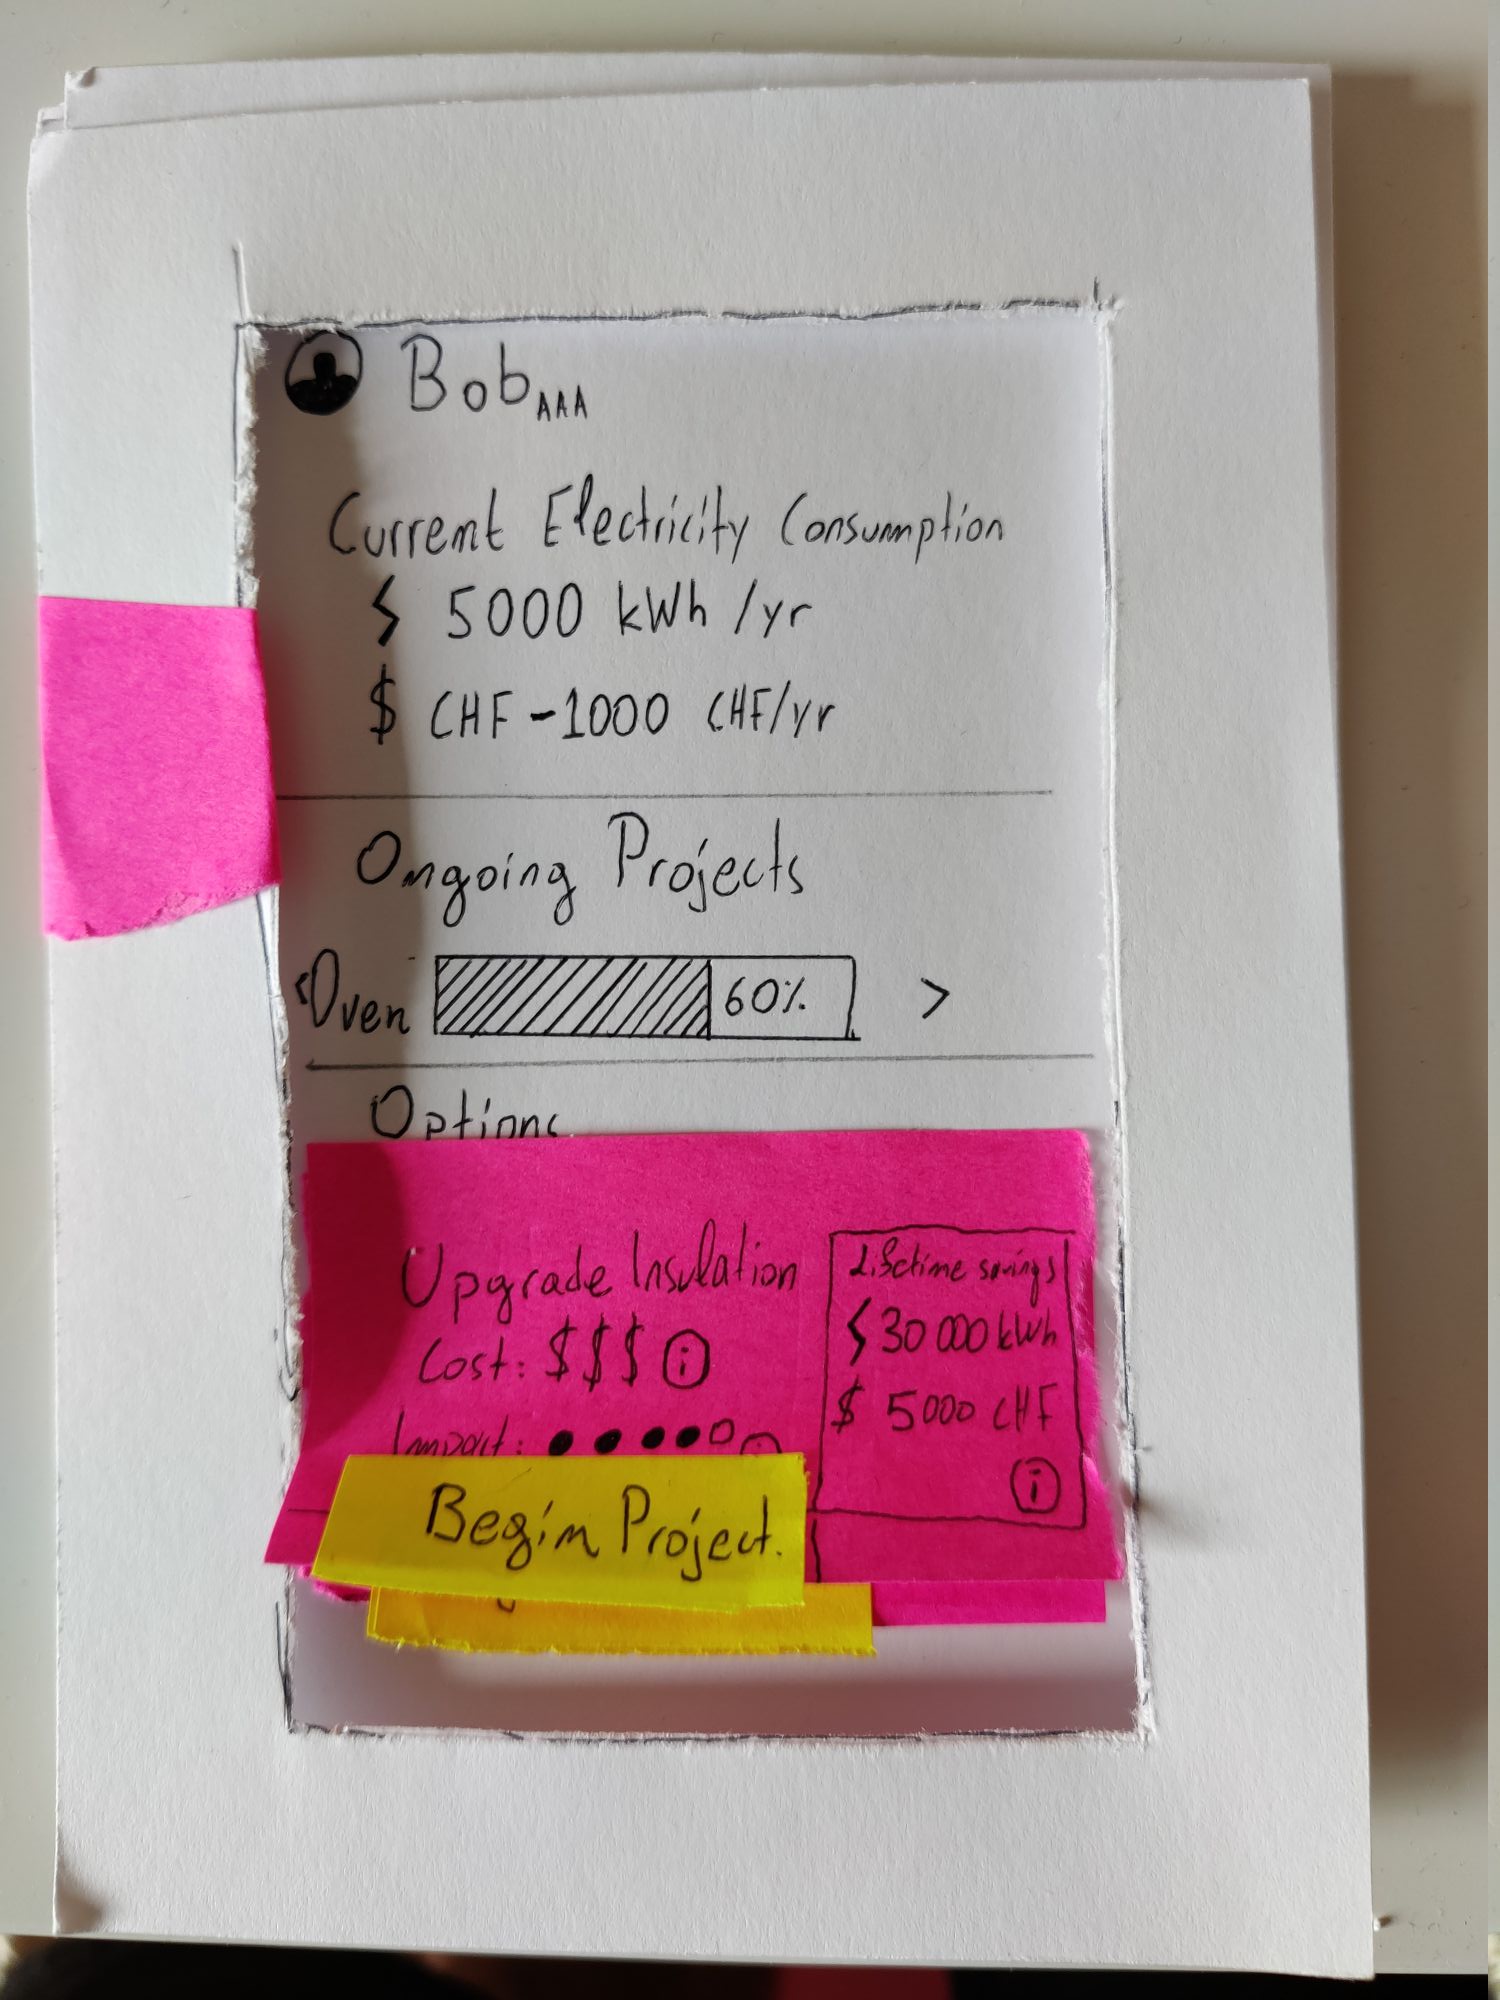 Bob AAA
Current Electricity Consumption
5000 kWh /yr
$ CHF -1000 CHF/yr
Ongoing Projects
< Oven 60% >
Options
Upgrade Insulation
Cost: $$$ i
Impact:
Lifetime savings
30 000 kWh
$ 5000 CHF
i
Begin Project.